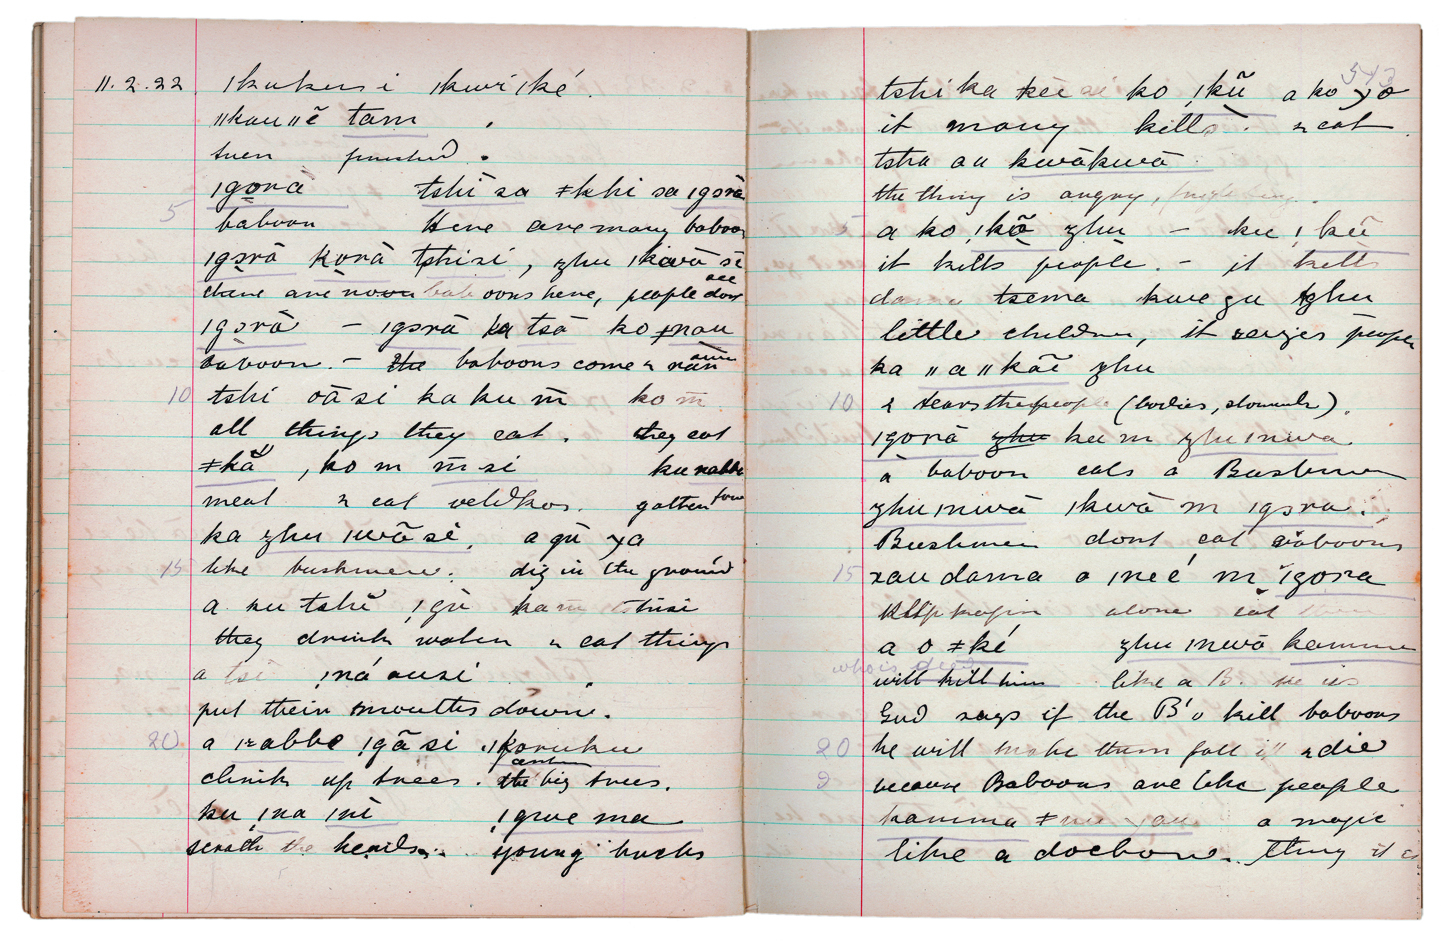 11.2.22. ǀkukusi ǀkwi ǀké.
ǁkauǁĕ tam .
suen finished .
ǀgora tshi sa ǂkhi sa ǀgorā
5
baboon Here are many baboon
ǀgorā korā tshisi, zhu ǀkwā sĕ
there are no baboons here, people dont see
ǀgorā — ǀgorā ka tsā ko
baboon. — the baboons come & ruin
10 tshi oā si ka ku m̄ ko m̄
all things they eat. they eat
ǂkā , ko m m̄ si ku nabbe
meat & eat veldkos. gotten four
ka zhu ǀwā sé, a gū ya
15 like bushmen. dig in the ground
a ku tshĕ ǃgū ka m̄ tshisi
they drink water & eat things
a tsi ǃná ausi .
put their mouths down.
20 a zabbe ǃgā si ǃkoruku
climb up trees. the big trees.
ku ǃna ǃnĕ ǃgwe ma
scratch the heads. young bucks
543
tshi ka kee si ko ǃkũ a ko yo
it many kills. & eat
tsha au kwākwā
the thing is angry,
5 a ko ǃkō zhu — ku ǃkū
it kills people. — it kills
dama tsema kwe gu zhu
little children, it seizes people
ka ǁaǁkāĕ zhu
10 & tears the people (bodies, stomach).
ǀgorā zhu ka m zhu ǀnwa
a baboon eats a Bushman
zhu ǀnwā ǀkwā m ǀgora.
Bushmen dont eat baboons
15 xau dama o ǀneé m ǀgora
Klip kafir alone eat them
a o ǂké zhu ǀnwā kamma
who is dead
will kill him like a B. he is
God says if the B's kill baboons
20 he will make them fall ill & die
because Baboons are like people
kamma a magic
like a doctor. thing it is